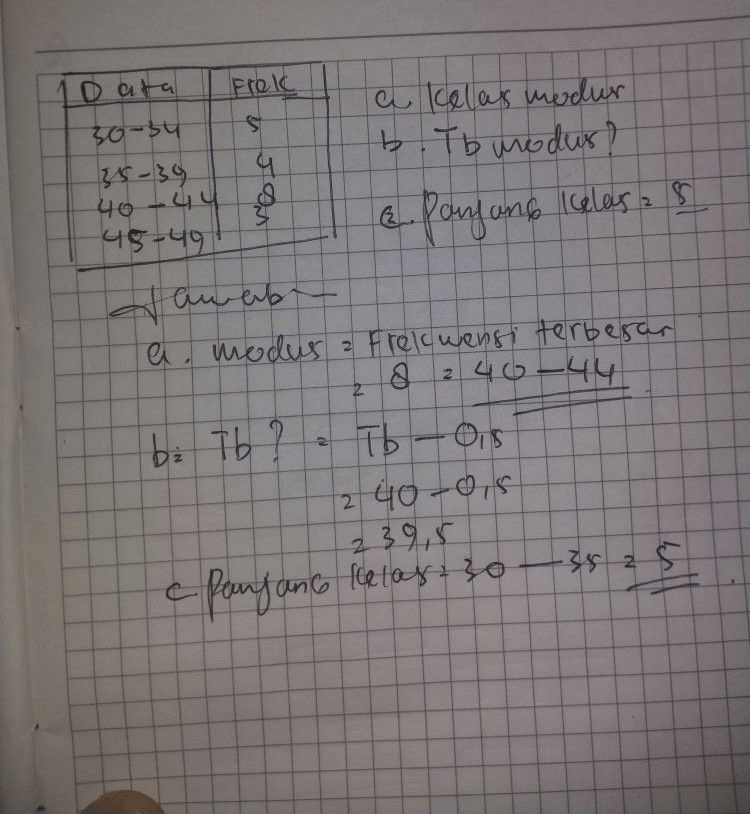 1 Data Frek
30-34 5
35-39 4
40-44 8
45-49 3
a. Kelas modus
b. Tb modus?
c. Panjang Kelas = 5
Jawab
a. modus = Frekwensi terbesar
= 8 = 40-44
b = Tb? = Tb - 0,5
= 40 - 0,5
= 39,5
c Panjang Kelas = 30 - 35 = 5